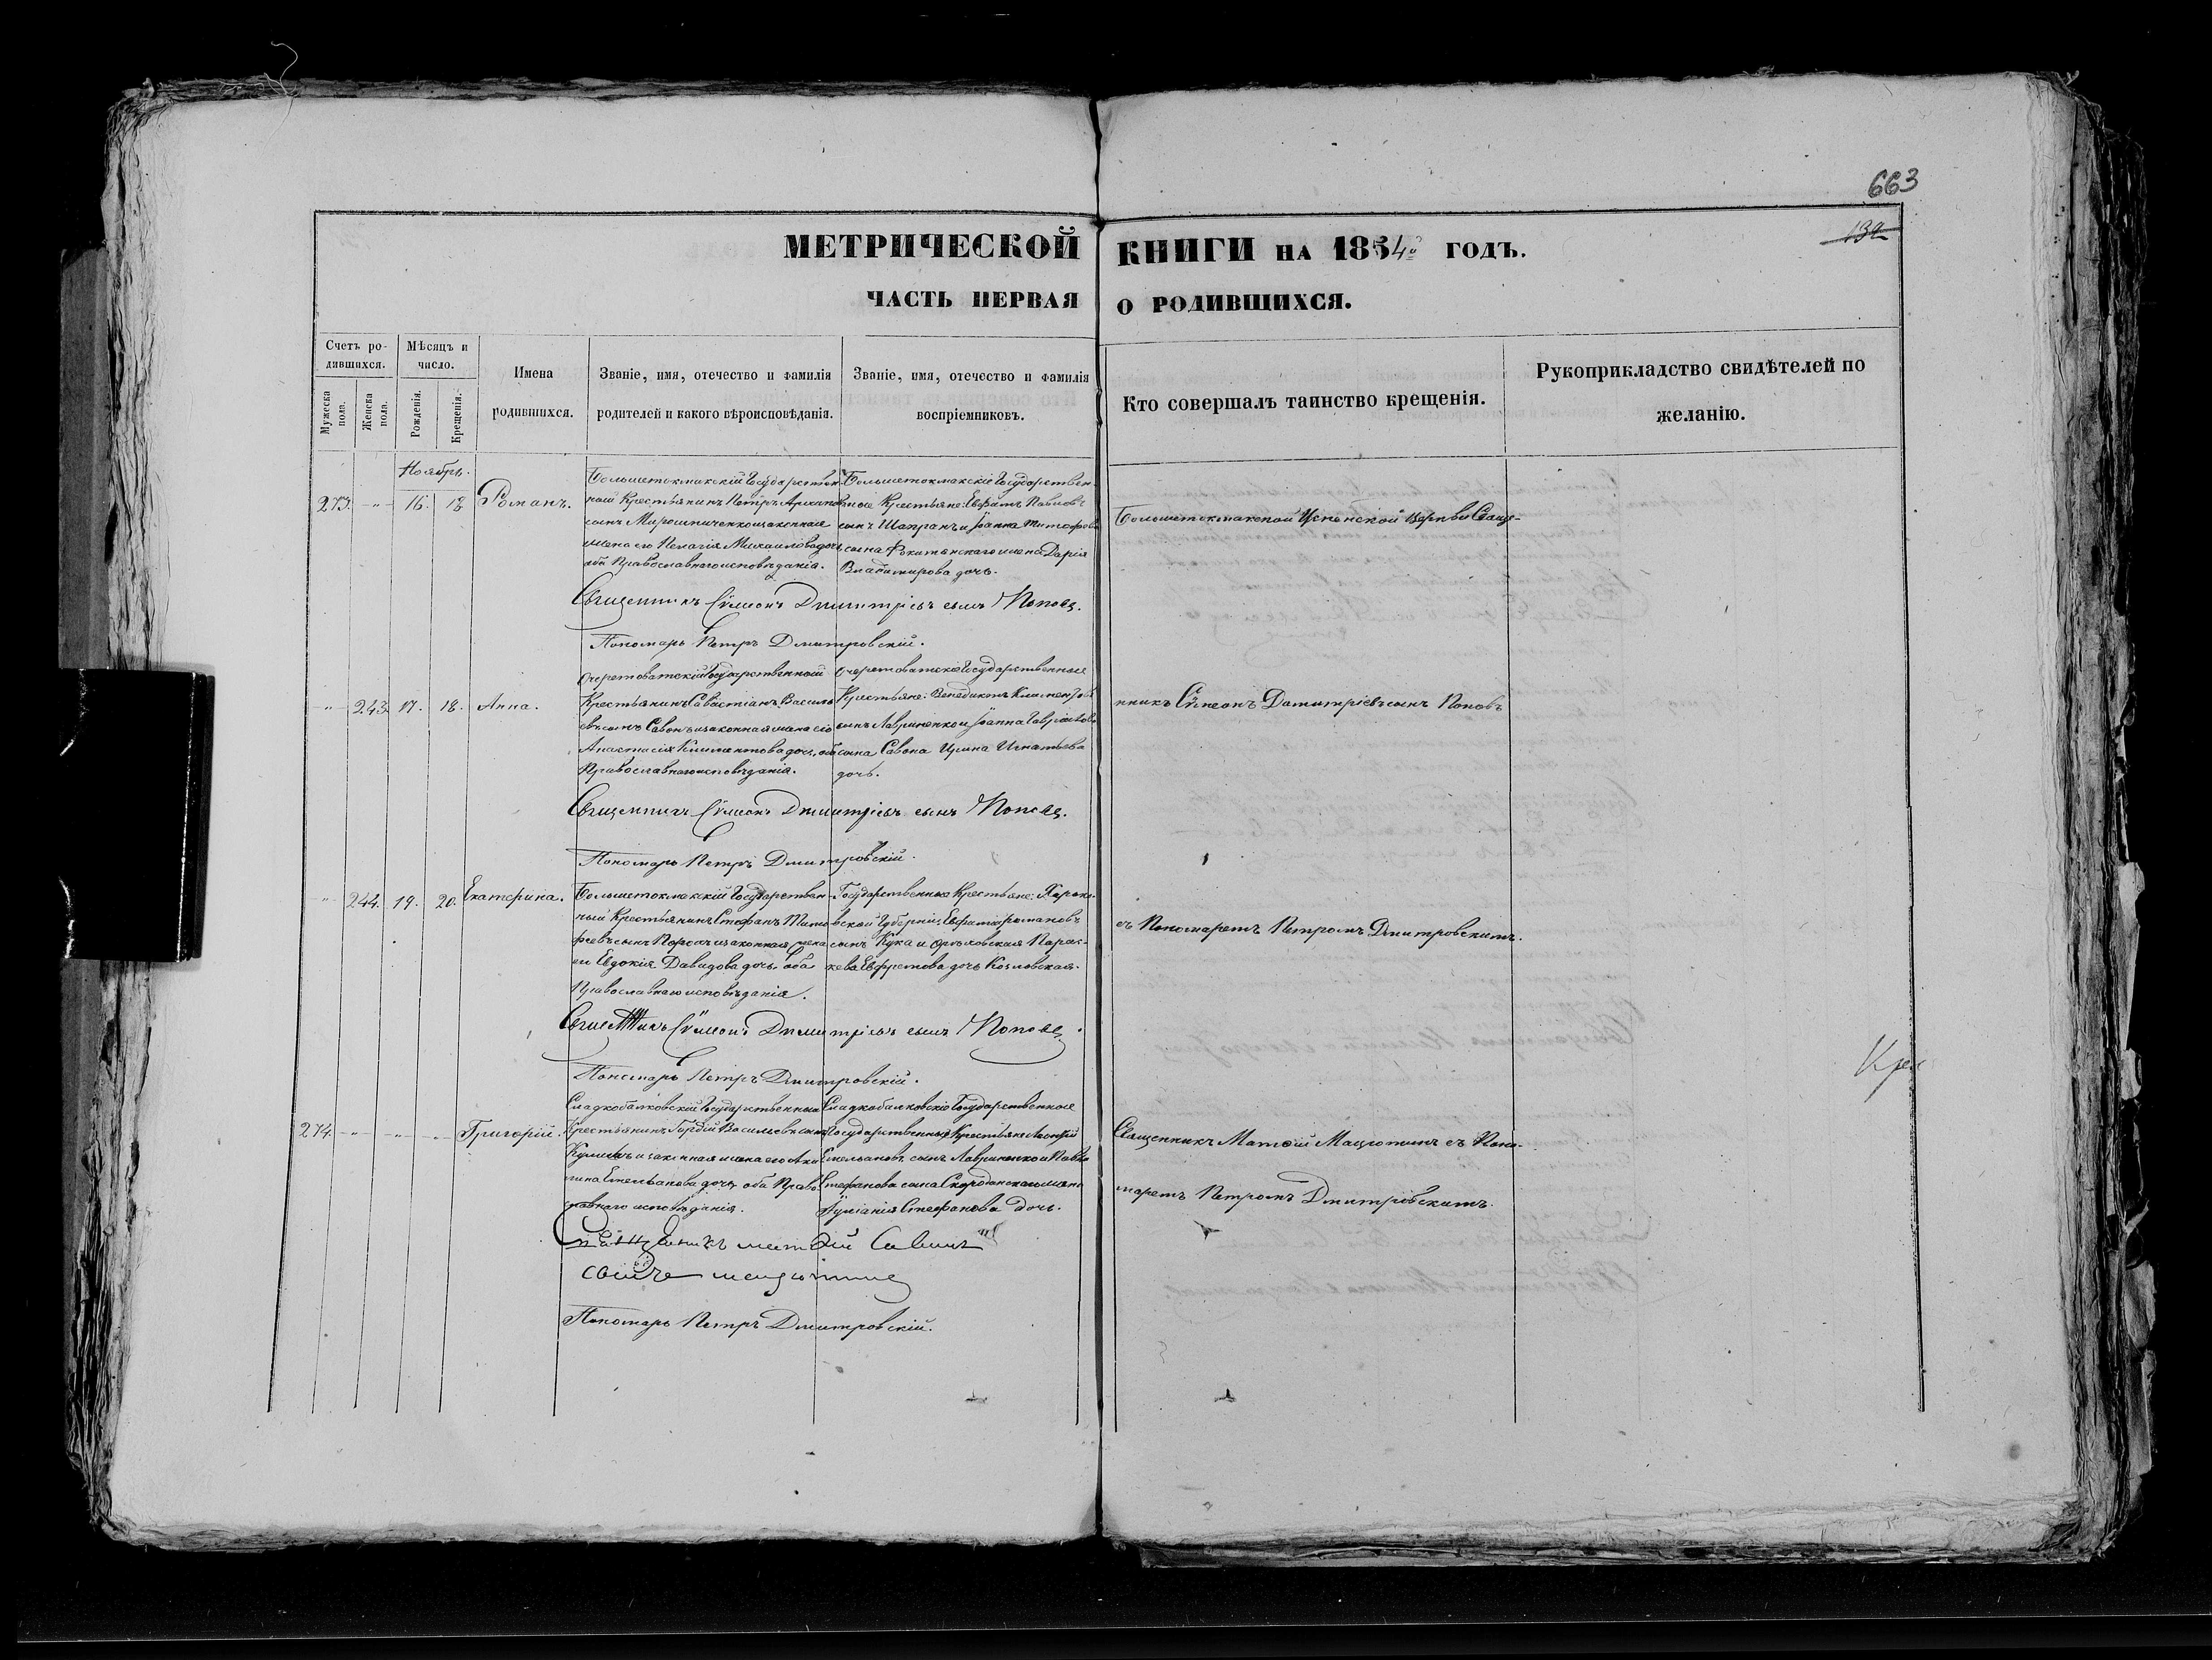 663
132
МЕТРИЧЕСКОЙ КНИГИ НА 1854й ГОДЪ.
ЧАСТЬ ПЕРВАЯ О РОДИВШИХСЯ.
Счетъ ро-
дившихся.
Мужеска
пола.
Женска
пола.
Мѣсяцъ и
число.
Рожденія.
Крещенія.
Имена
родившихся.
Званіе, имя, отечество и фамилія
родителей и какого вѣроисповѣданія.
Званіе, имя, отечество и фамилія
воспріемниковъ.
Кто совершалъ таинство крещенія.
Рукоприкладство свидѣтелей по
желанію.
Ноябрь.
273. - " - 16. 18 Романъ.
Большетокмакскій Государствен
ный Крестьянинъ Петръ
сынъ Мирошниченко и законная
жена его Пелагія Михаилова дочь
оба Православнаго исповѣданія.
Большетокмакскіе Государствен-
ные Крестьяне: Павловъ
сынъ Шапранъ и Іоанна
сына жена Дарія
Владимирова дочь.
Большетокмакской Успенской церкви Свяще-
Священникъ Сѵмеонъ Димитріевъ сынъ Поповъ.
Пономарь Петръ Дмитровскій.
- " - 243. 17. 18. Анна.
Очеретоватскій Государственный
Крестьянинъ Савастіанъ Василь
евъ сынъ Савонъ и законная жена его
Анастасія Климентова дочь, оба
Православнаго исповѣданія.
Очеретоватскіе Государственные
Крестьяне: Венедиктъ
сынъ Лавриненко и Іоанна Гавріилова
сына Савона Ирина Игнатьева
дочь.
нникъ Сѵмеонъ Димитріевъ сынъ Поповъ
Священникъ Сѵмеонъ Димитріевъ сынъ Поповъ.
Пономарь Петръ Дмитровскій.
" 244. 19. 20. Екатерина.
Большетокмакскій Государствен-
ный Крестьянинъ Стефанъ Тимо
феевъ сынъ и законная жена
его Евдокія Давидова дочь, оба
Православнаго исповѣданія.
Государственные Крестьяне: Харько-
вской Губерніи, Романовъ
сынъ Кука и Орловская Парас-
кева Ефремова дочь Козловская.
съ Пономаремъ Петромъ Дмитровскимъ.
Священникъ Сѵмеонъ Димитріевъ сынъ Поповъ.
Пономарь Петръ Дмитровскій.
274. - " - - " - - - Григорій.
Сладкобалковскій Государственный
Крестьянинъ Гордій Васильевъ сынъ
и законная жена его Аки
лина Емельянова дочь, оба Право
славнаго исповѣданія.
Сладкобалковскіе Государственные
Государственные Крестьяне
Емельяновъ сынъ Лавриненко и Павла
Стефанова сына жена
Стефанова дочь.
Священникъ Матѳій Мацютинъ съ Поно-
маремъ Петромъ Дмитровскимъ.
Священникъ Матѳій Савинъ
сынъ
Пономарь Петръ Дмитровскій.